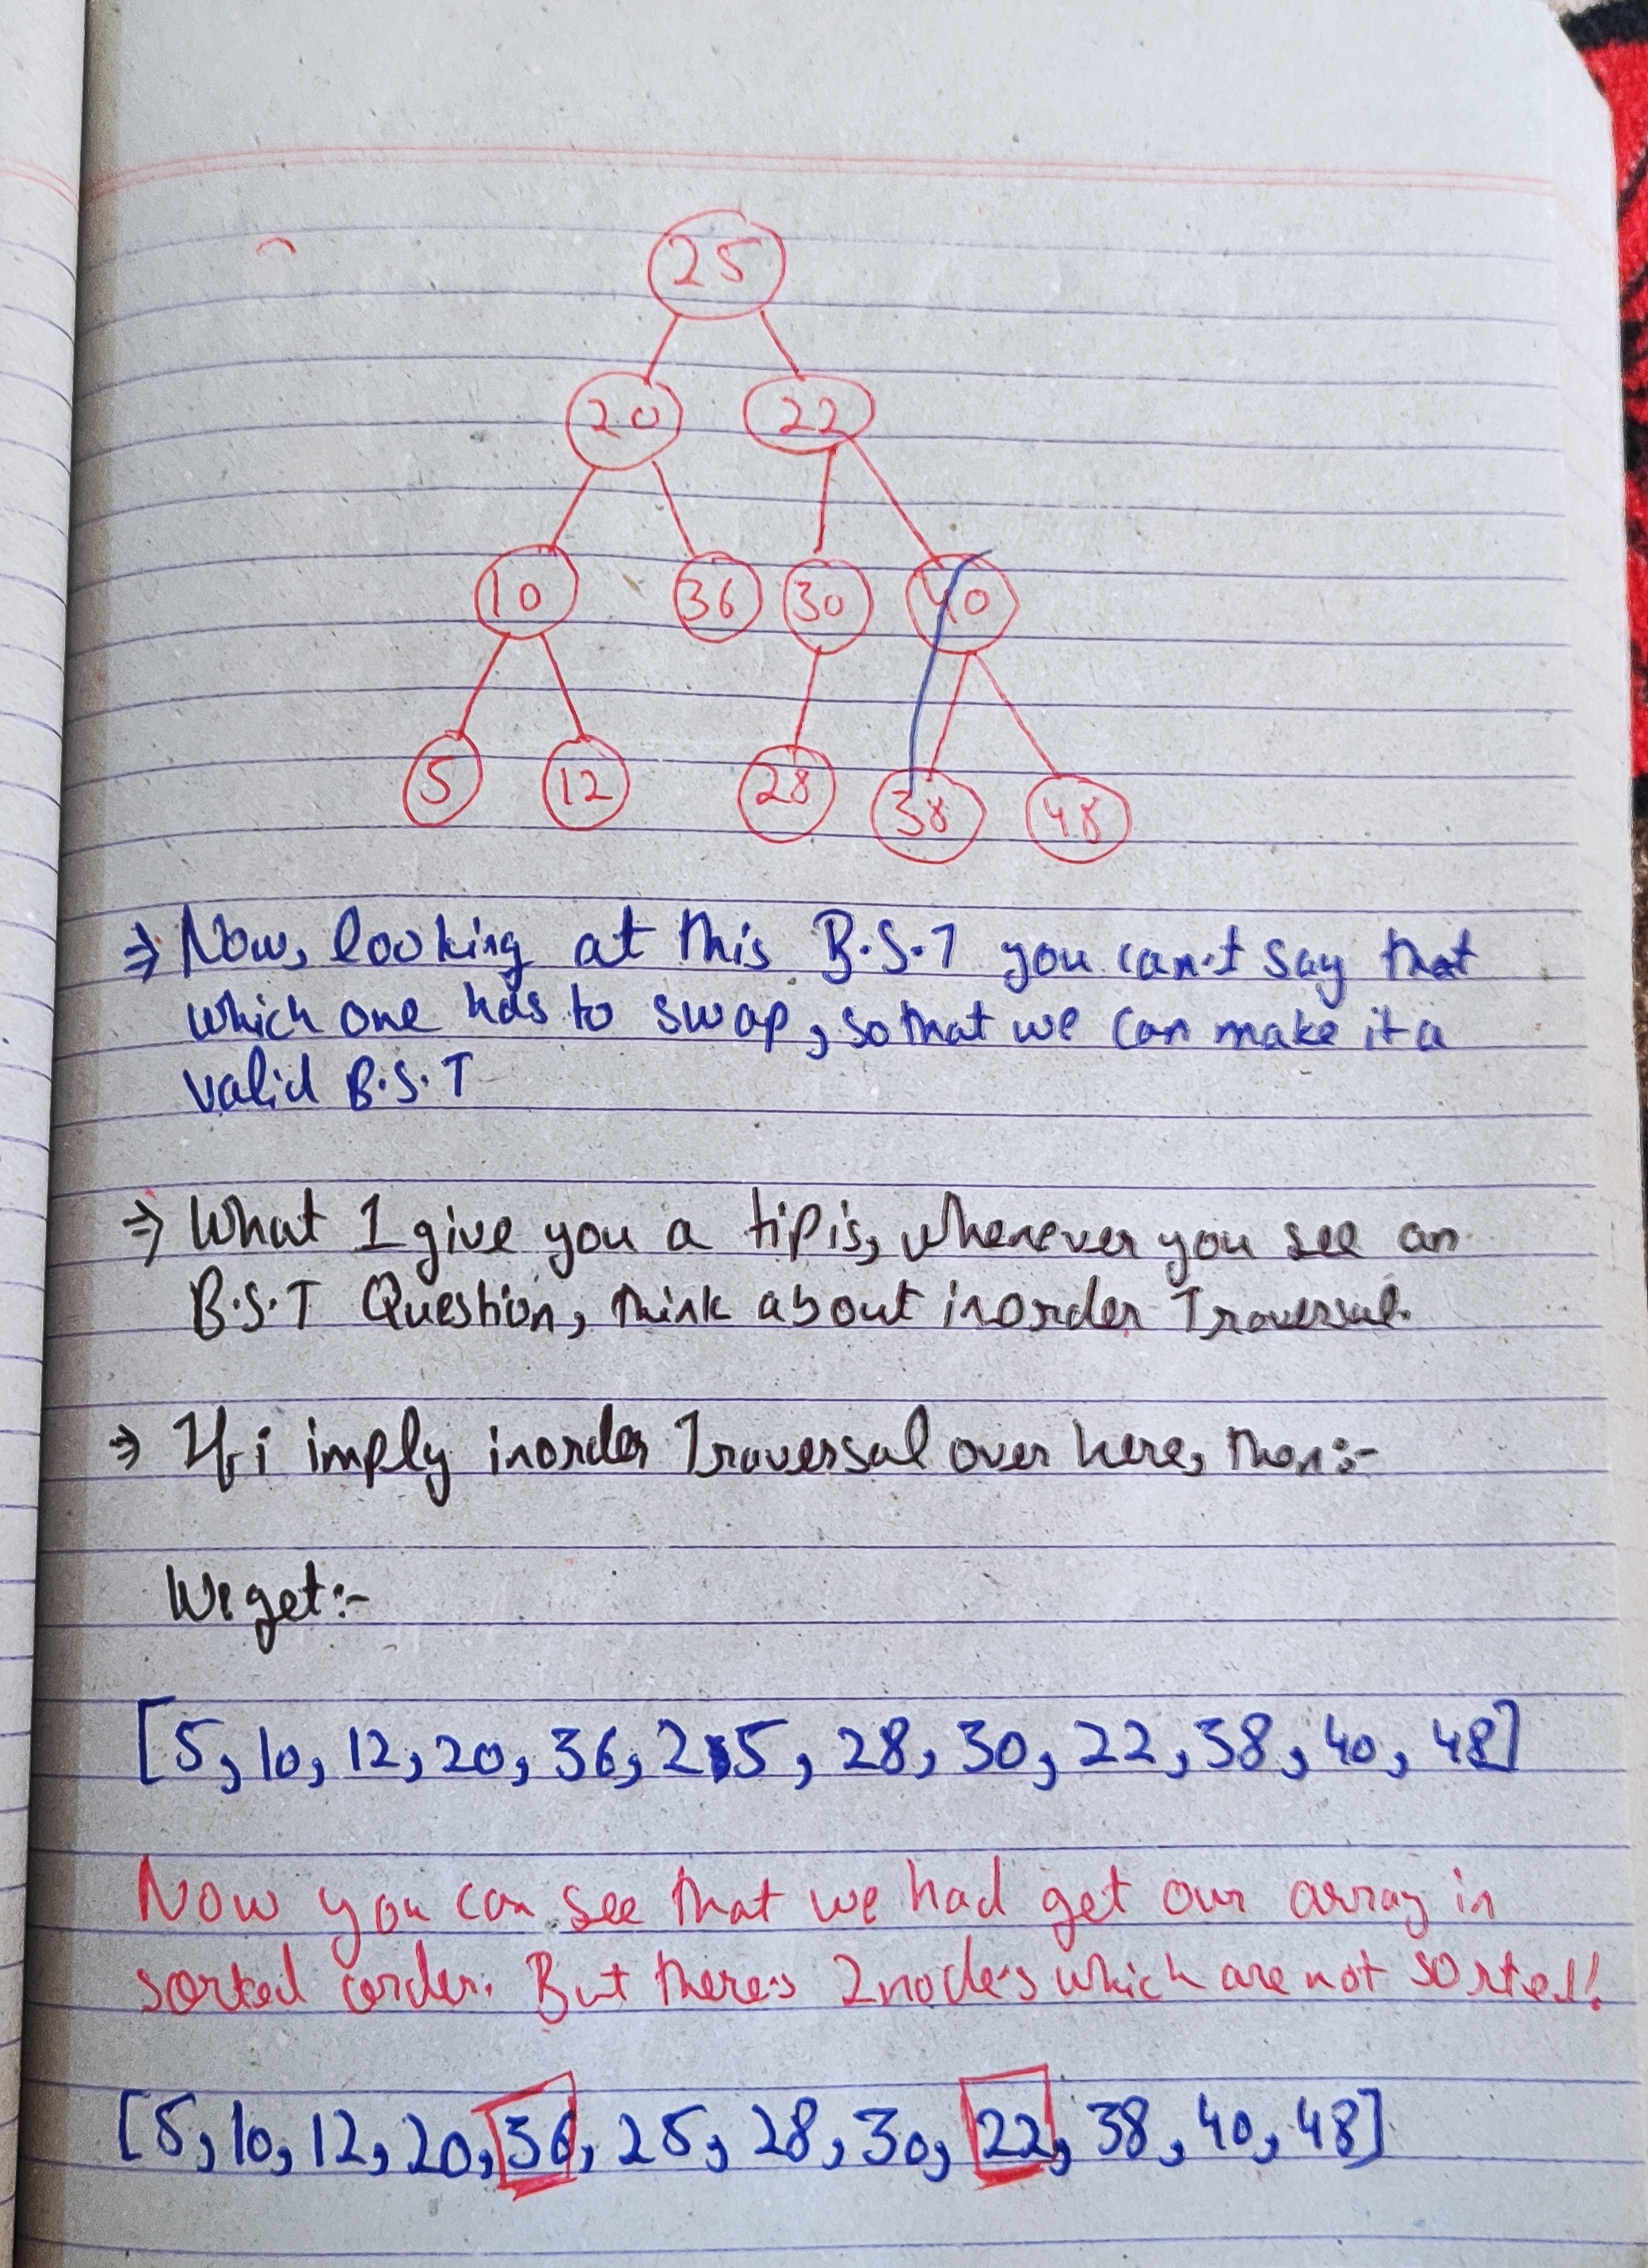 25
20 22
10 36 30 40
5 12 28 38 48
⇒ Now, looking at this B.S.T you can't say that
which one has to swap, so that we can make it a
valid B.S.T
⇒ What I give you a tip is, whenever you see an
B.S.T Question, think about inorder Traversal.
⇒ If i imply inorder Traversal over here, then:-
We get:-
[5, 10, 12, 20, 36, 25, 28, 30, 22, 38, 40, 48]
Now you can see that we had get our array in
sorted order. But there's 2 node's which are not sorted!
[5, 10, 12, 20, 36, 25, 28, 30, 22, 38, 40, 48]